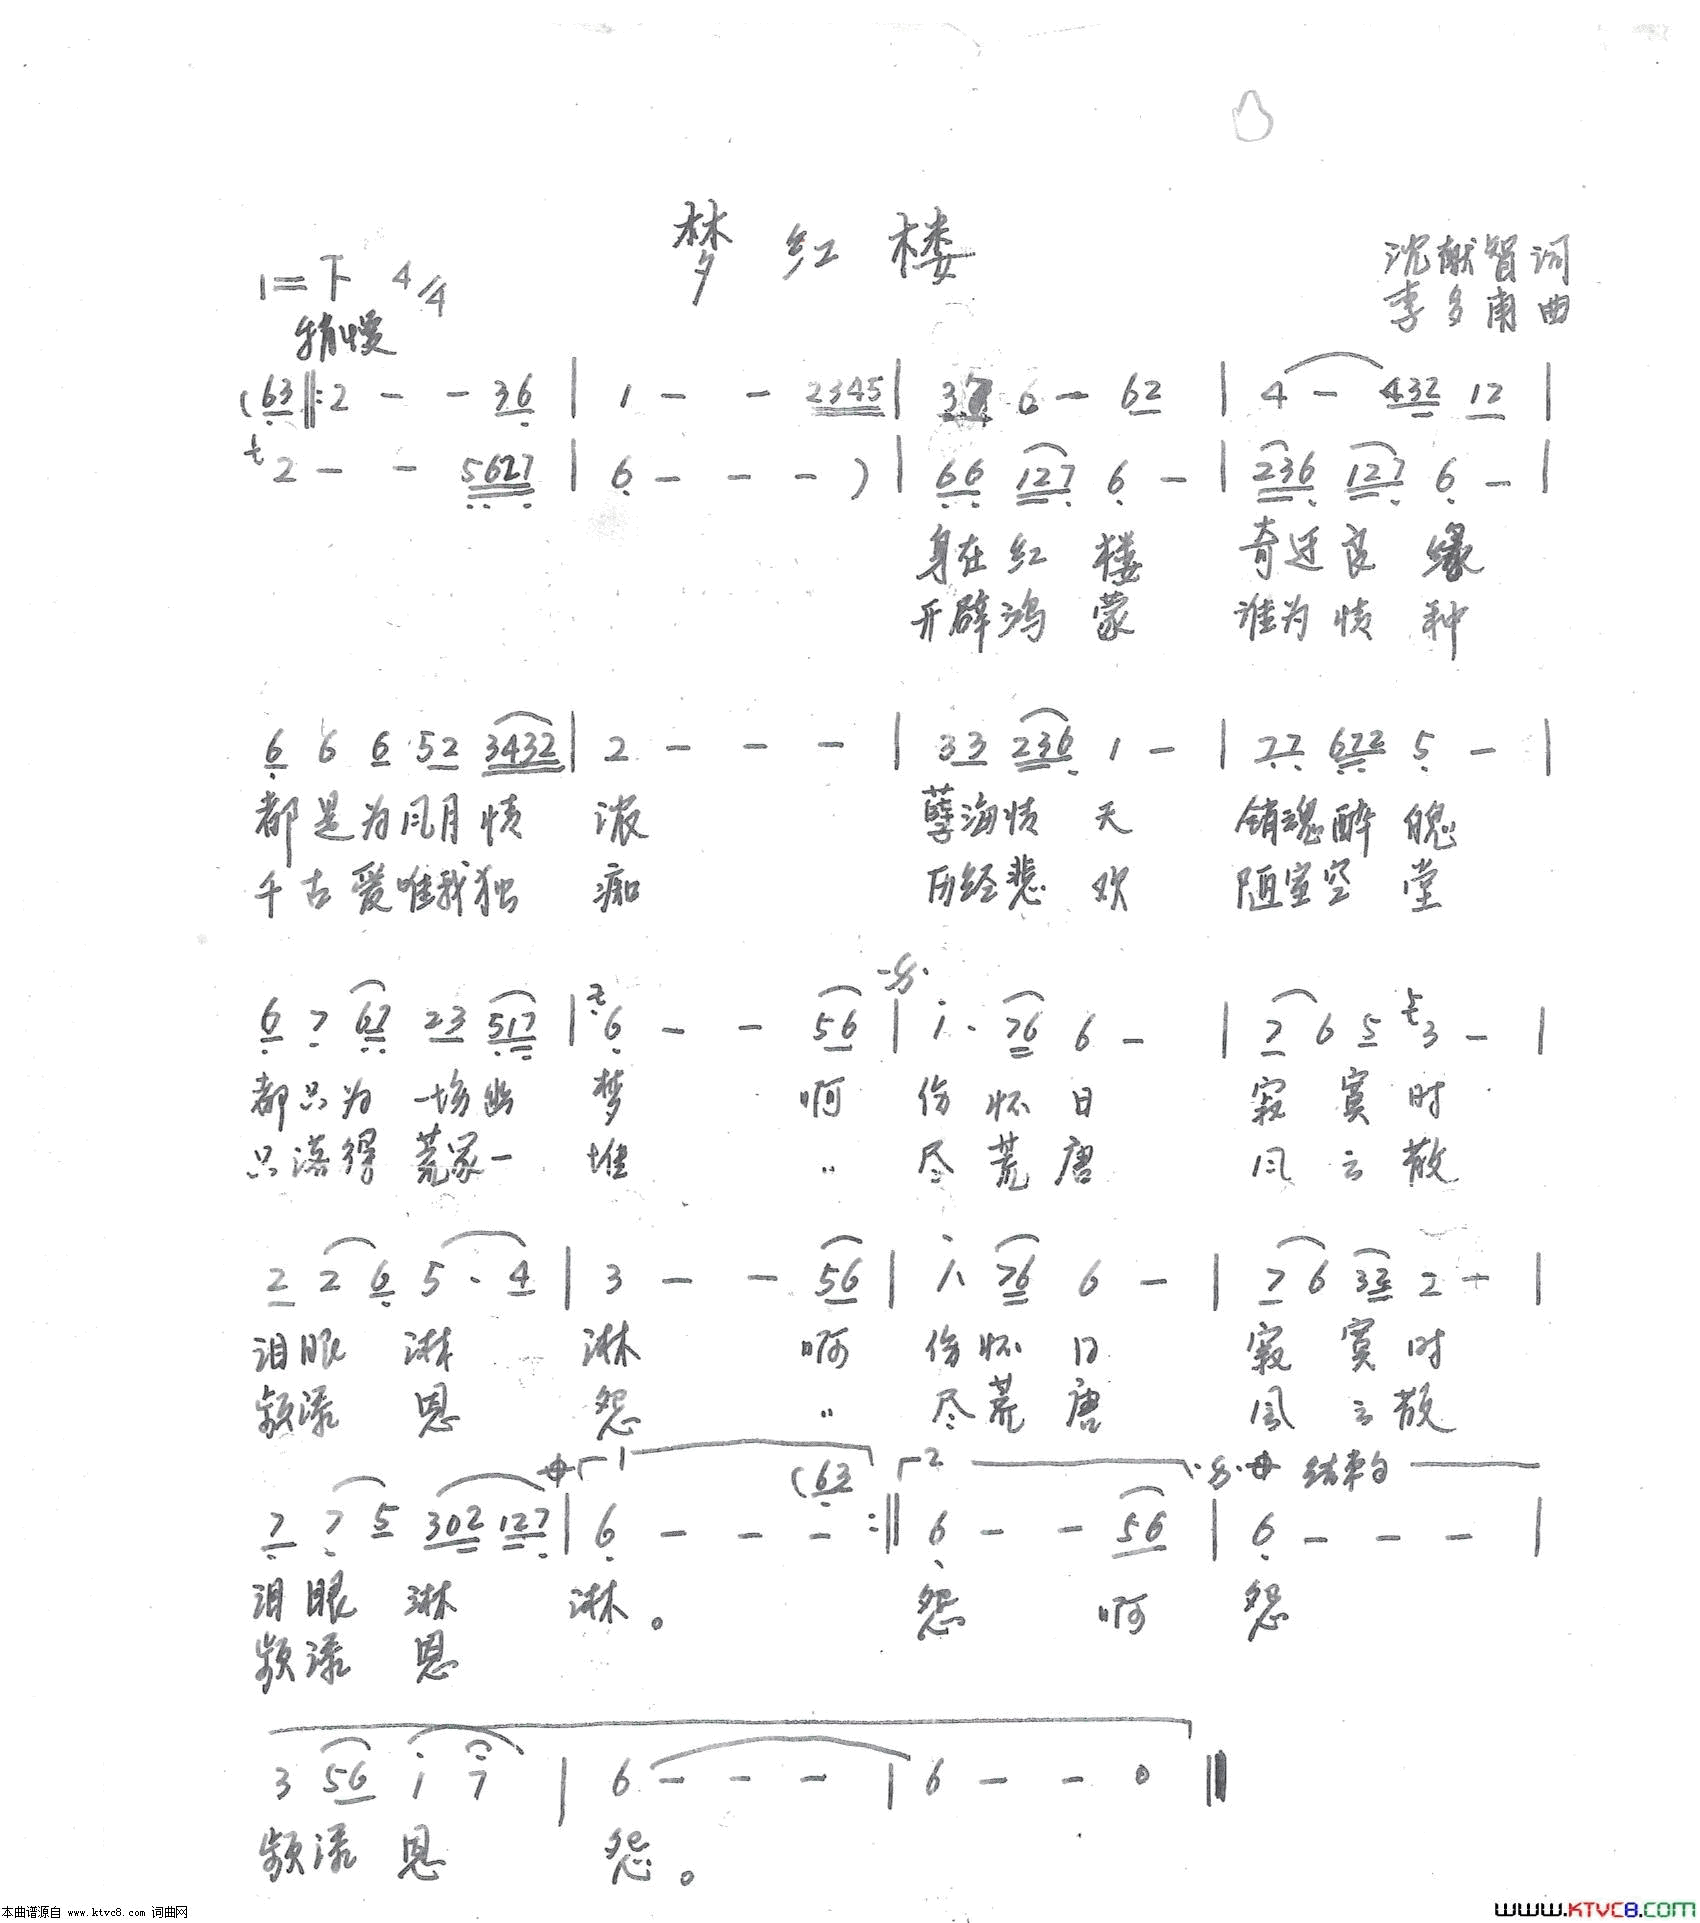 梦红楼
沈献智词
1=F 4/4
李多甫曲
稍慢
(63‖:2 - - 36 | 1 - - 2345 | 3 6 - 62 | 4 - 432 12 |
2 - - 5627 | 6 - - - ) | 66 127 6 - | 236 127 6 - |
身在红楼 奇迂良缘
开辟鸿蒙 谁为情种
6 6 6 52 3432 | 2 - - - | 33 236 1 - | 77 672 5 - |
都是为风月情浓 孽海情天 销魂醉魄
千古爱唯我独痴 历经悲欢 陋室空堂
6 7 67 23 517 | 6 - - 56 | i· 76 6 - | 7 6 5 3 - |
都只为一场幽梦 啊 伤怀日 寂寞时
只落得荒冢一堆 〃 尽荒唐 风云散
2 2 6 5 · 4 | 3 - - 56 | i· 76 6 - | 7 6 32 2 - |
泪眼淋淋 啊 伤怀日 寂寞时
频添恩怨 〃 尽荒唐 风云散
1 (63 2 结束句
7 7 5 302 127 | 6 - - - :‖ 6 - - 56 | 6 - - - |
泪眼淋淋。 怨 啊 怨
频添恩
3 56 i 7 | 6 - - - | 6 - - 0 ‖
频添恩怨。
本曲谱源自 www.ktvc8.com 词曲网
www.KTVC8.com